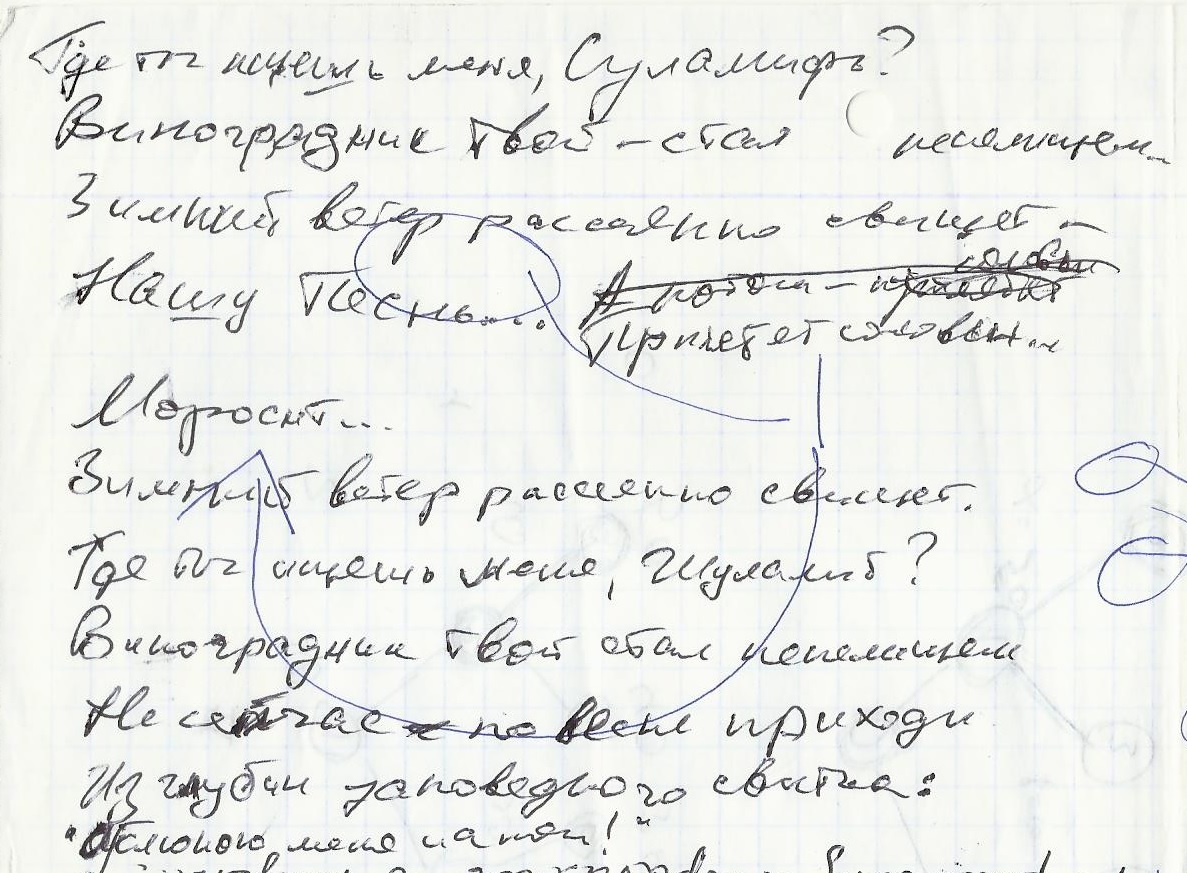 Где ты ищешь меня, Суламифь?
Виноградник твой – стал пепелищем...
Зимний ветер рассеянно свищет –
Нашу Песнь...
А потом – соловьи
Прилетят соловьи...
Моросит...
Зимний ветер рассеянно свищет.
Где ты ищешь меня, Шуламит?
Виноградник твой стал пепелищем
Не сейчас – по весне приходи
Из глубин заповедного свитка:
меня